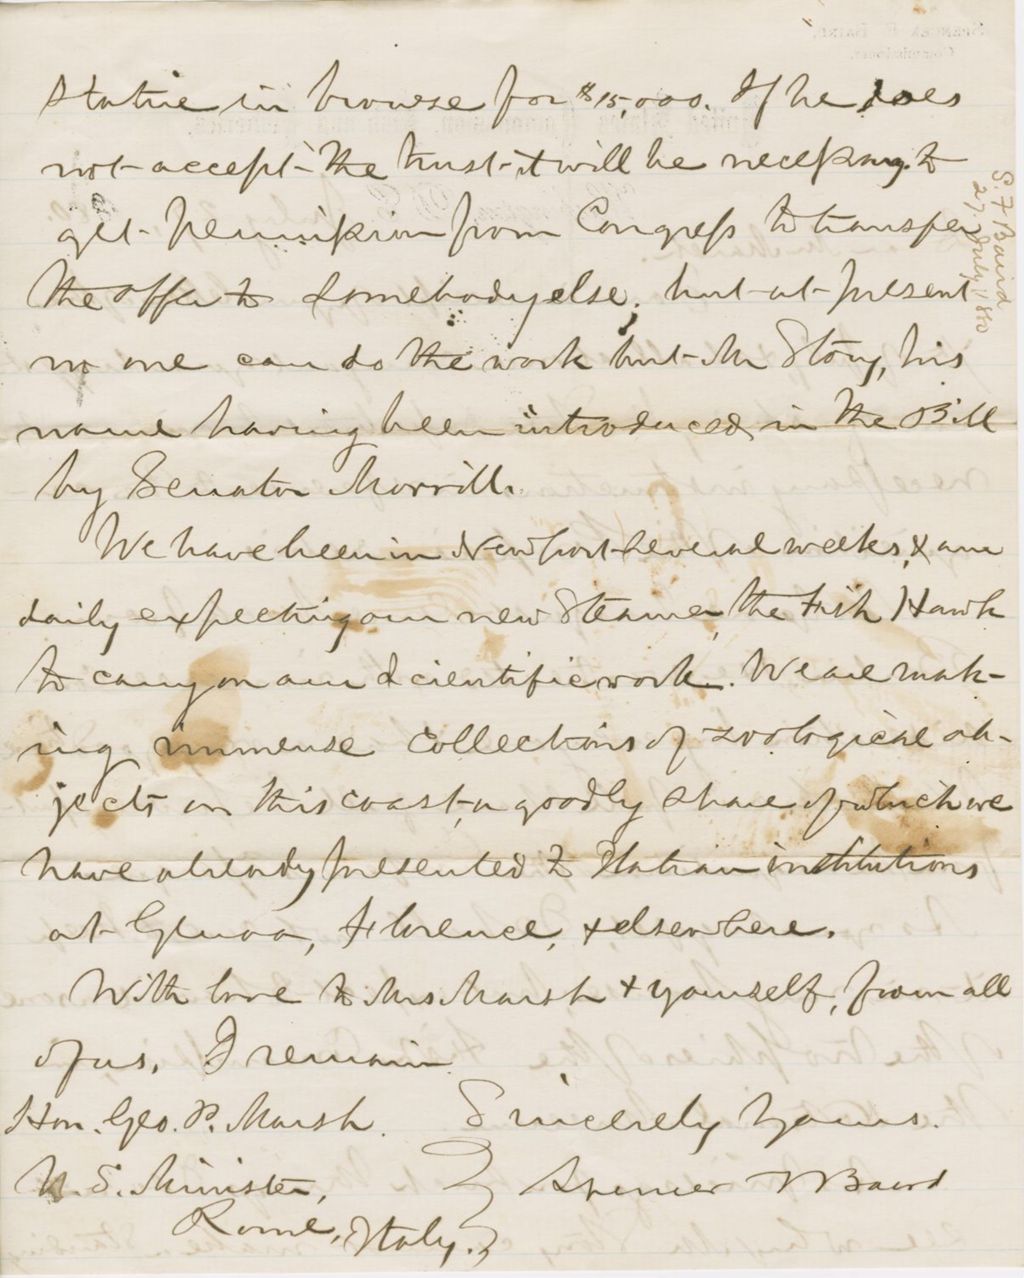 statue in bronze for $15,000. If he does
not accept the trust it will be necessary to
get permission from Congress to transfer
the offer to somebody else, but at present
no one can do the work but Mr Story, his
name having been introduced in the Bill
by Senator Morrill.
We have been in Newport several weeks, & am
daily expecting our new Steamer, the Fish Hawk
to carry on our scientific work. We are mak-
ing immense collections of zoological ob-
jects on this coast, a goodly share of which we
have already presented to Italian institutions
at Genoa, Florence, & elsewhere.
With love to Mrs Marsh & yourself, from all
of us, I remain
Sincerely Yours.
Spencer F Baird
Hon. Geo. P. Marsh.
U. S. Minister,
Rome, Italy.
S. F. Baird
27. July 1880